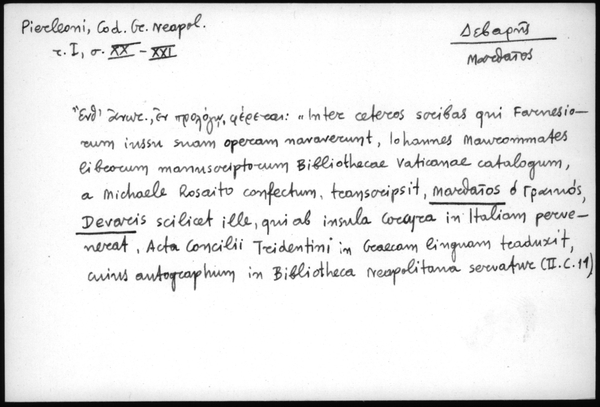 Pierleoni, Cod. Gr. Neapol.
τ. I, σ. XX - XXI
Δεβαρῆς
Ματθαῖος
"Ἔνθ' ἀνωτ., ἐν προλόγῳ, φέρεται: "Inter ceteros scribas qui Farnesio-
rum iussu suam operam navaverunt, Iohannes Maurommates
librorum manuscriptorum Bibliothecae Vaticanae catalogum,
a Michaele Rosaito confectum, transcripsit, Ματθαῖος ὁ
Devaris scilicet ille, qui ab insula Corcyra in Italiam perve-
nerat, Acta Concilii Tridentini in Graecam linguam traduxit,
cuius autographum in Bibliotheca Neapolitana servatur (II.C.11)